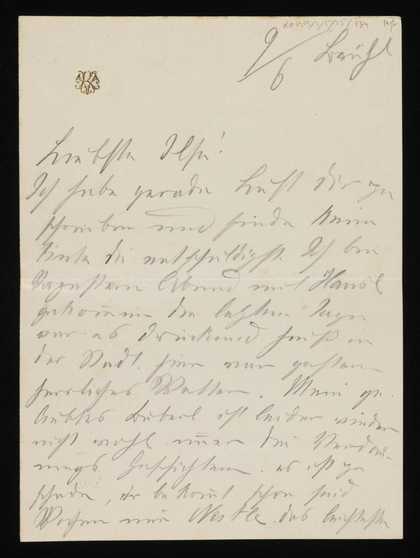 9/6 Brühl
Liebste Ilse!
Ich habe gerade Lust Dir zu
schreiben und finde keine
Tinte Du entschuldigst. Ich bin
gestern Abend mit Hansl
gekommen die letzten Tage
war es drückend heiß in
der Stadt, hier war gestern
herrliches Wetter. Mein ge-
liebtes Buberl ist leider wieder
nicht wohl immer die Verdau-
ungs Geschichten. es ist zu
schade, er bekommt schon seit
Wochen nur Nestle das leichteste